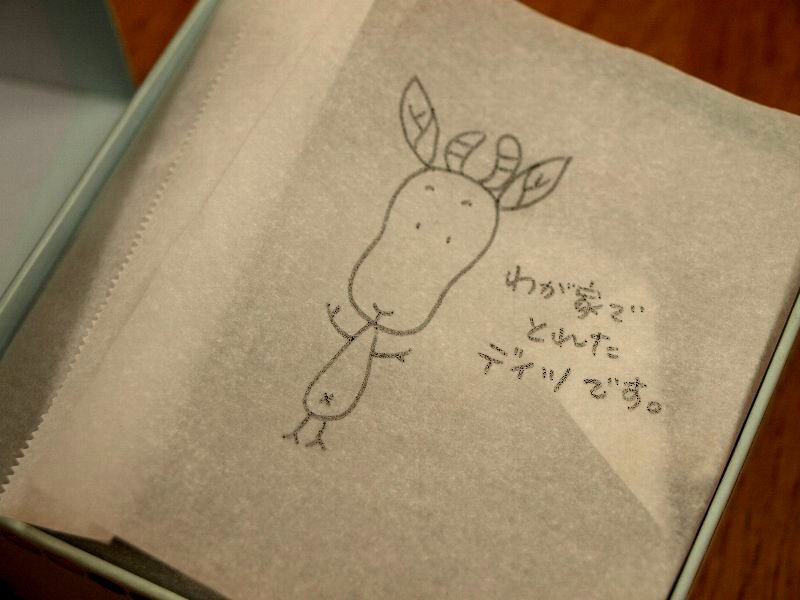 わが家で
とれた
デイツです。